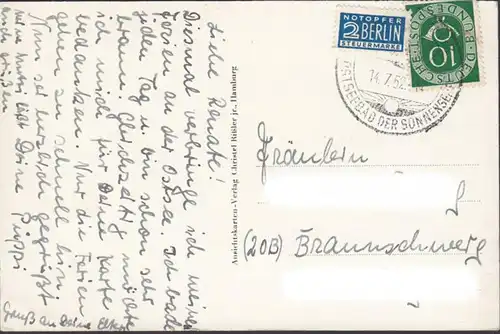 Liebe Renate!
Diesmal verbringe ich meine
Ferien an der Ostsee. Ich bade
jeden Tag u. bin schon sehr
braun. Gleichzeitig möchte
ich mich für Deine Karte
bedanken. Nur die Ferien
gehen zu schnell hin.
Nun sei herzlich gegrüßt
von Deine
Gruß an Deine Eltern
Ansichtskarten-Verlag Christel Rößler jr., Hamburg
NOTOPFER
2 BERLIN
STEUERMARKE
DEUTSCHE BUNDESPOST
10
14.7.52
OSTSEEBAD DER SONNENSEITE
Fräulein
(20B) Braunschweig